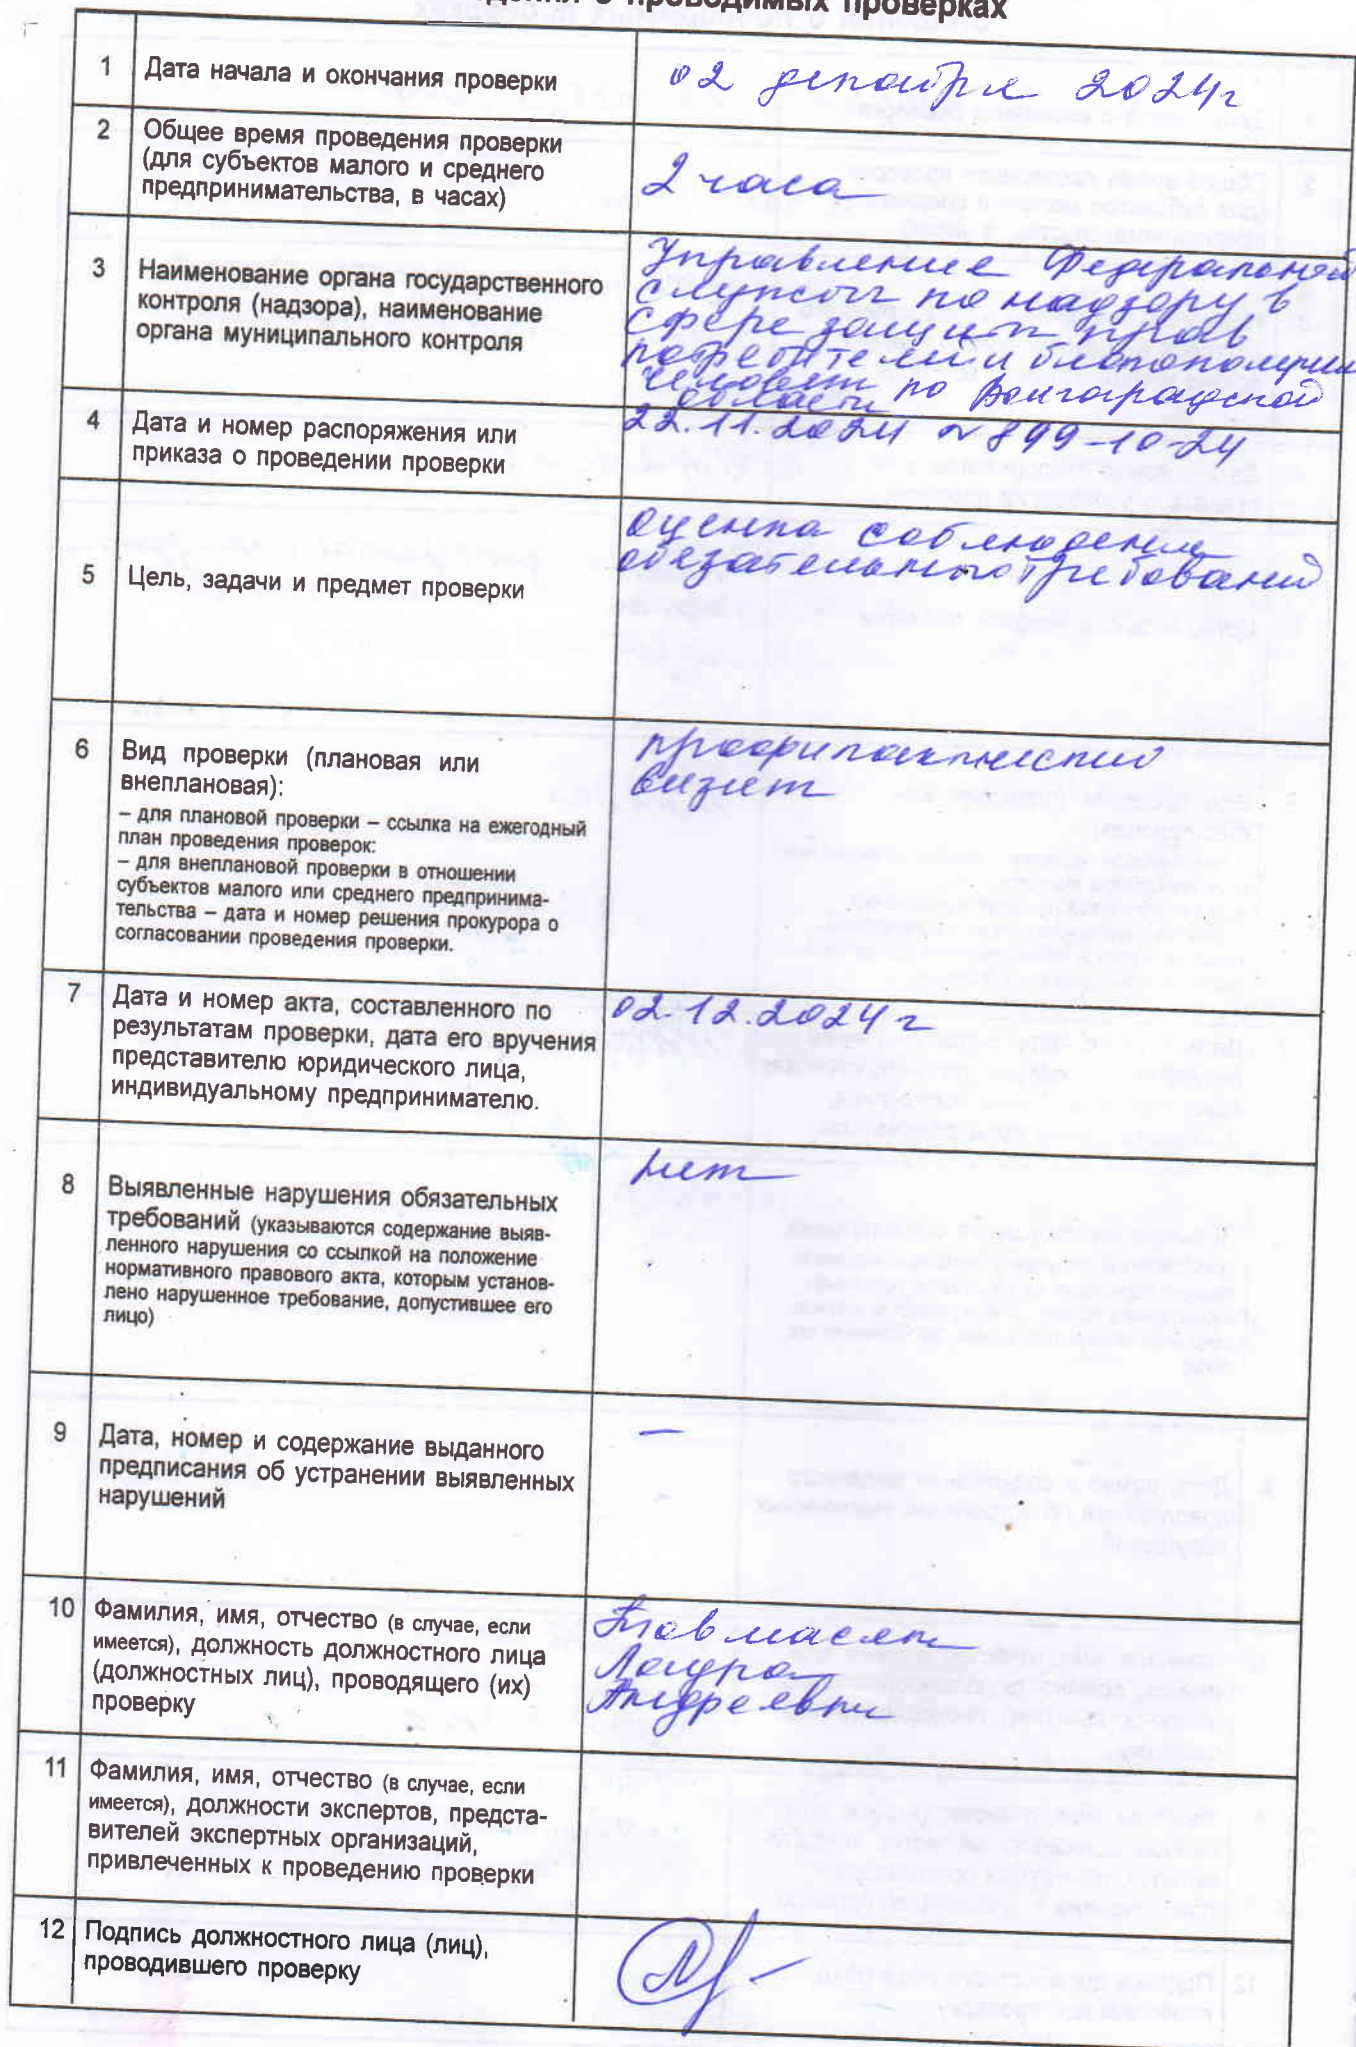 о проводимых проверках
1 Дата начала и окончания проверки
02 декабря 2024г
2 Общее время проведения проверки
(для субъектов малого и среднего
предпринимательства, в часах)
2 часа
3 Наименование органа государственного
контроля (надзора), наименование
органа муниципального контроля
Управление Федеральной
службы по надзору в
сфере защиты прав
потребителей и благополучия
человека по Волгоградской
области
4 Дата и номер распоряжения или
приказа о проведении проверки
22.11.2024 № 899-10-24
5 Цель, задачи и предмет проверки
оценка соблюдения
обязательных требований
6 Вид проверки (плановая или
внеплановая):
– для плановой проверки – ссылка на ежегодный
план проведения проверок:
– для внеплановой проверки в отношении
субъектов малого или среднего предпринима-
тельства – дата и номер решения прокурора о
согласовании проведения проверки.
профилактический
визит
7 Дата и номер акта, составленного по
результатам проверки, дата его вручения
представителю юридического лица,
индивидуальному предпринимателю.
02.12.2024г
8 Выявленные нарушения обязательных
требований (указываются содержание выяв-
ленного нарушения со ссылкой на положение
нормативного правового акта, которым установ-
лено нарушенное требование, допустившее его
лицо)
нет
9 Дата, номер и содержание выданного
предписания об устранении выявленных
нарушений
—
10 Фамилия, имя, отчество (в случае, если
имеется), должность должностного лица
(должностных лиц), проводящего (их)
проверку
Товмасян
Лаура
Андреевна
11 Фамилия, имя, отчество (в случае, если
имеется), должности экспертов, предста-
вителей экспертных организаций,
привлеченных к проведению проверки
12 Подпись должностного лица (лиц),
проводившего проверку